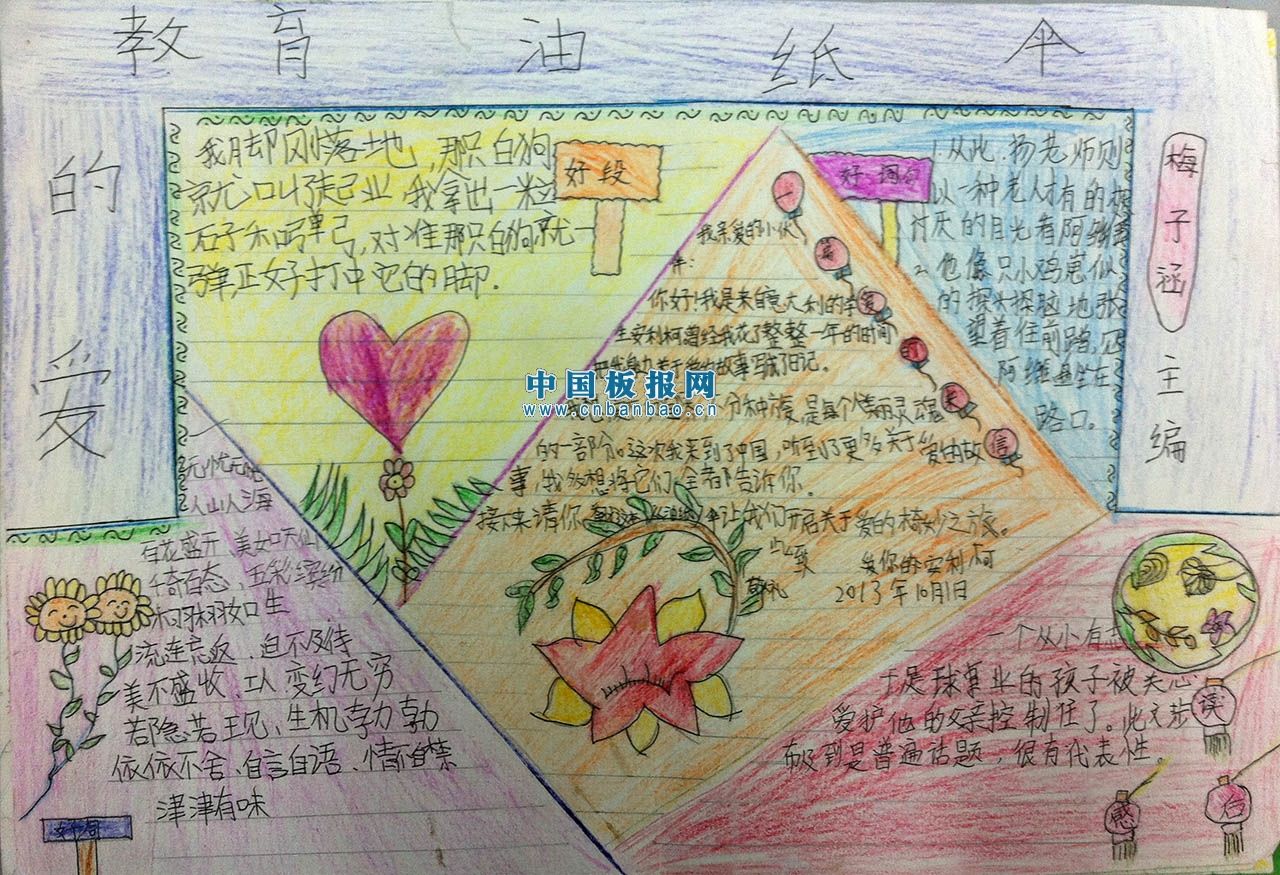 教育油纸伞
的爱
梅子涵
主编
好段
我脚刚落地,那只白狗
就叫了起业 我拿出一粒
石子和弹弓,对准那只白狗就一
弹,正好打中它的脚.
好词句
1.从此,杨老师则
以一种老人才有的
讨厌的目光看阿
2.他像只小鸡崽似
的探头探脑地张
望着住前路,见
阿维 坐在
路口。
一篇爱的来信
我亲爱的小伙
伴:
你好!我是来自意大利的学
生安利柯曾经我花了整整一年的时间
把我身边关于爱的故事写成了日记。
分种族,是每个情丽灵魂
的一部分。这次我来到了中国,听到了更多关于爱的故
事,我多想将它们全都告诉你。
接下来请你 让我们开启关于爱的奇妙之旅。
此致
敬礼
爱你的安利柯
2013年10月1日
中国板报网
www.cnbanbao.cn
无忧无虑
人山人海
百花盛开、美如天仙
千奇百态、五彩缤纷
栩栩如生
流连忘返、迫不及待
美不盛收、变幻无穷
若隐若现、生机勃勃
依依不舍、自言自语、情不自禁
津津有味
好词
读后感
一个从小有志
于足球事业的孩子被关心
爱护他的父亲控制住了。此文涉
及到是普遍话题,很有代表性。